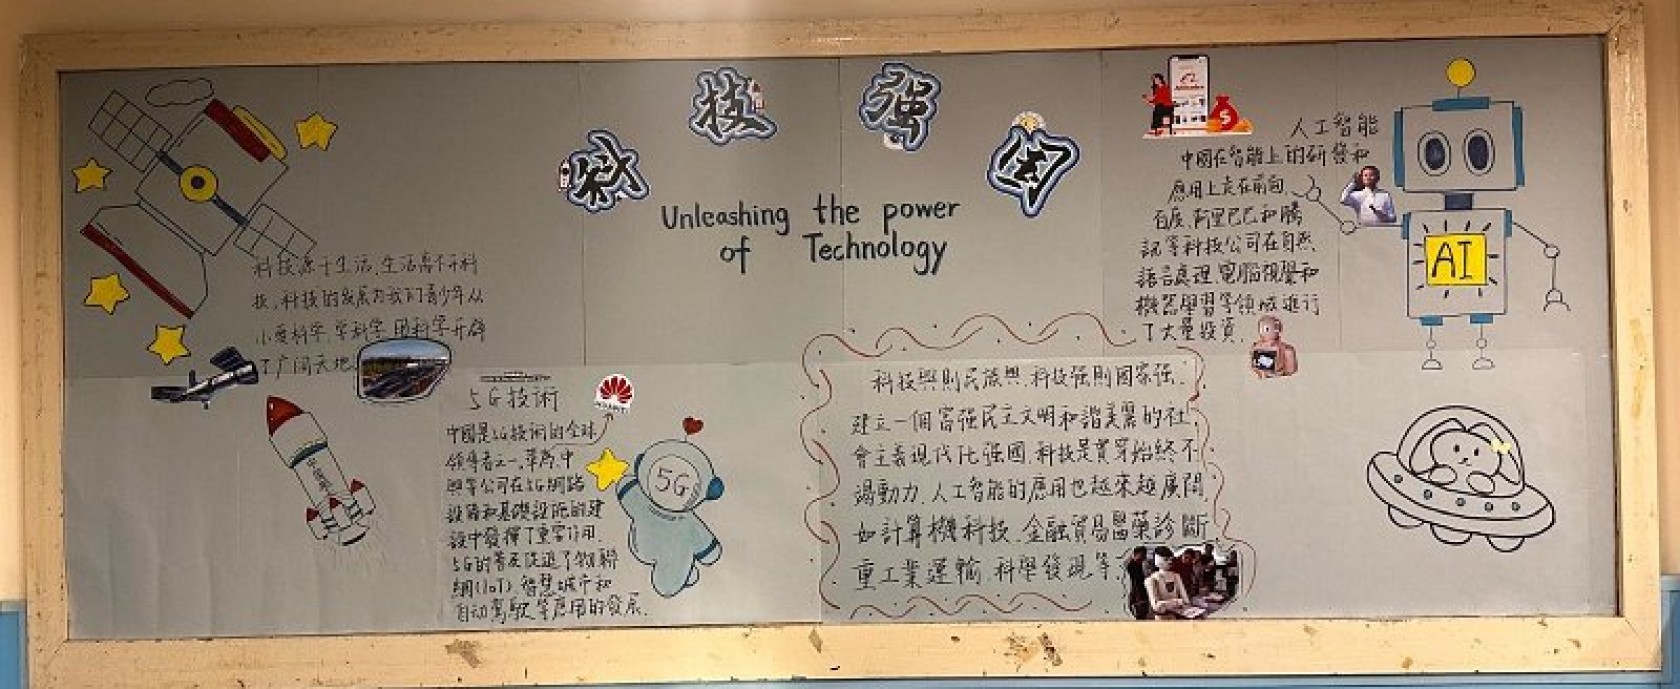 科技强国
Unleashing the power
of Technology
科技源于生活,生活离不开科
技,科技的发展为我们青少年从
小爱科学,学科学,用科学开辟
了广阔天地
5G技術
中國是5G技術的全球
領導者之一,華為,中
興等公司在5G網路
設備和基礎設施的建
設中發揮了重要作用.
5G的普及促進了物聯
網(IoT),智慧城市和
自动駕駛等應用的發展.
HUAWEI
5G
科技興則民族興,科技强則國家强.
建立一個富强民主文明和諧美麗的社
會主義現代化强國,科技是貫穿始終不
竭動力,人工智能的應用也越來越廣闊,
如計算機科技,金融貿易醫藥診斷,
重工業運輸,科學發現等
人工智能
中國在智能上的研發和
應用上走在前面,
百度,阿里巴巴和騰
訊等科技公司在自然
語言處理,電腦視覺和
機器學習等領域進行
了大量投資.
AI